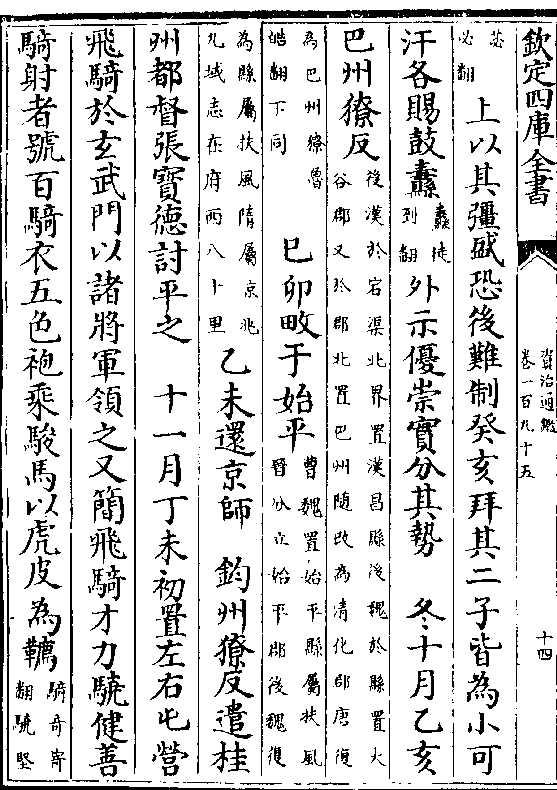 欽定四庫全書
資治通鑑
卷一百九十五
十四
苾
必翻
上以其彊盛恐後難制癸亥拜其二子皆為小可
汗各賜鼓纛
纛徒
到翻
外示優崇實分其勢 冬十月乙亥
巴州獠反
後漢於宕渠北界置漢昌縣後魏於縣置大
谷郡又於郡北置巴州隨改為清化郡唐復
為巴州獠魯
皓翻下同
己卯畋于始平
曹魏置始平縣屬扶風
晉分立始平郡後魏復
為縣屬扶風隋屬京兆
九域志在府西八十里
乙未還京師 鈞州獠反遣桂
州都督張寶德討平之 十一月丁未初置左右屯營
飛騎於玄武門以諸將軍領之又簡飛騎才力驍健善
騎射者號百騎衣五色袍乘駿馬以虎皮為韉
騎奇寄
翻驍堅